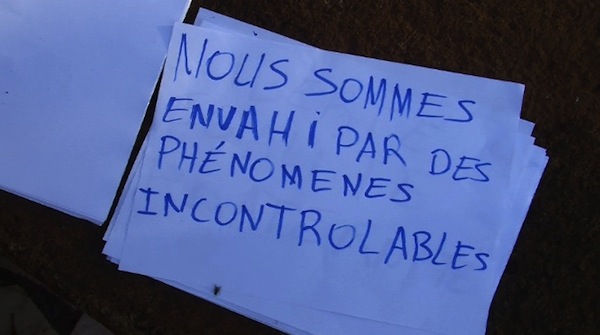 NOUS SOMMES
ENVAHi PAR DES
PHÉNOMENES
INCONTROLABLES